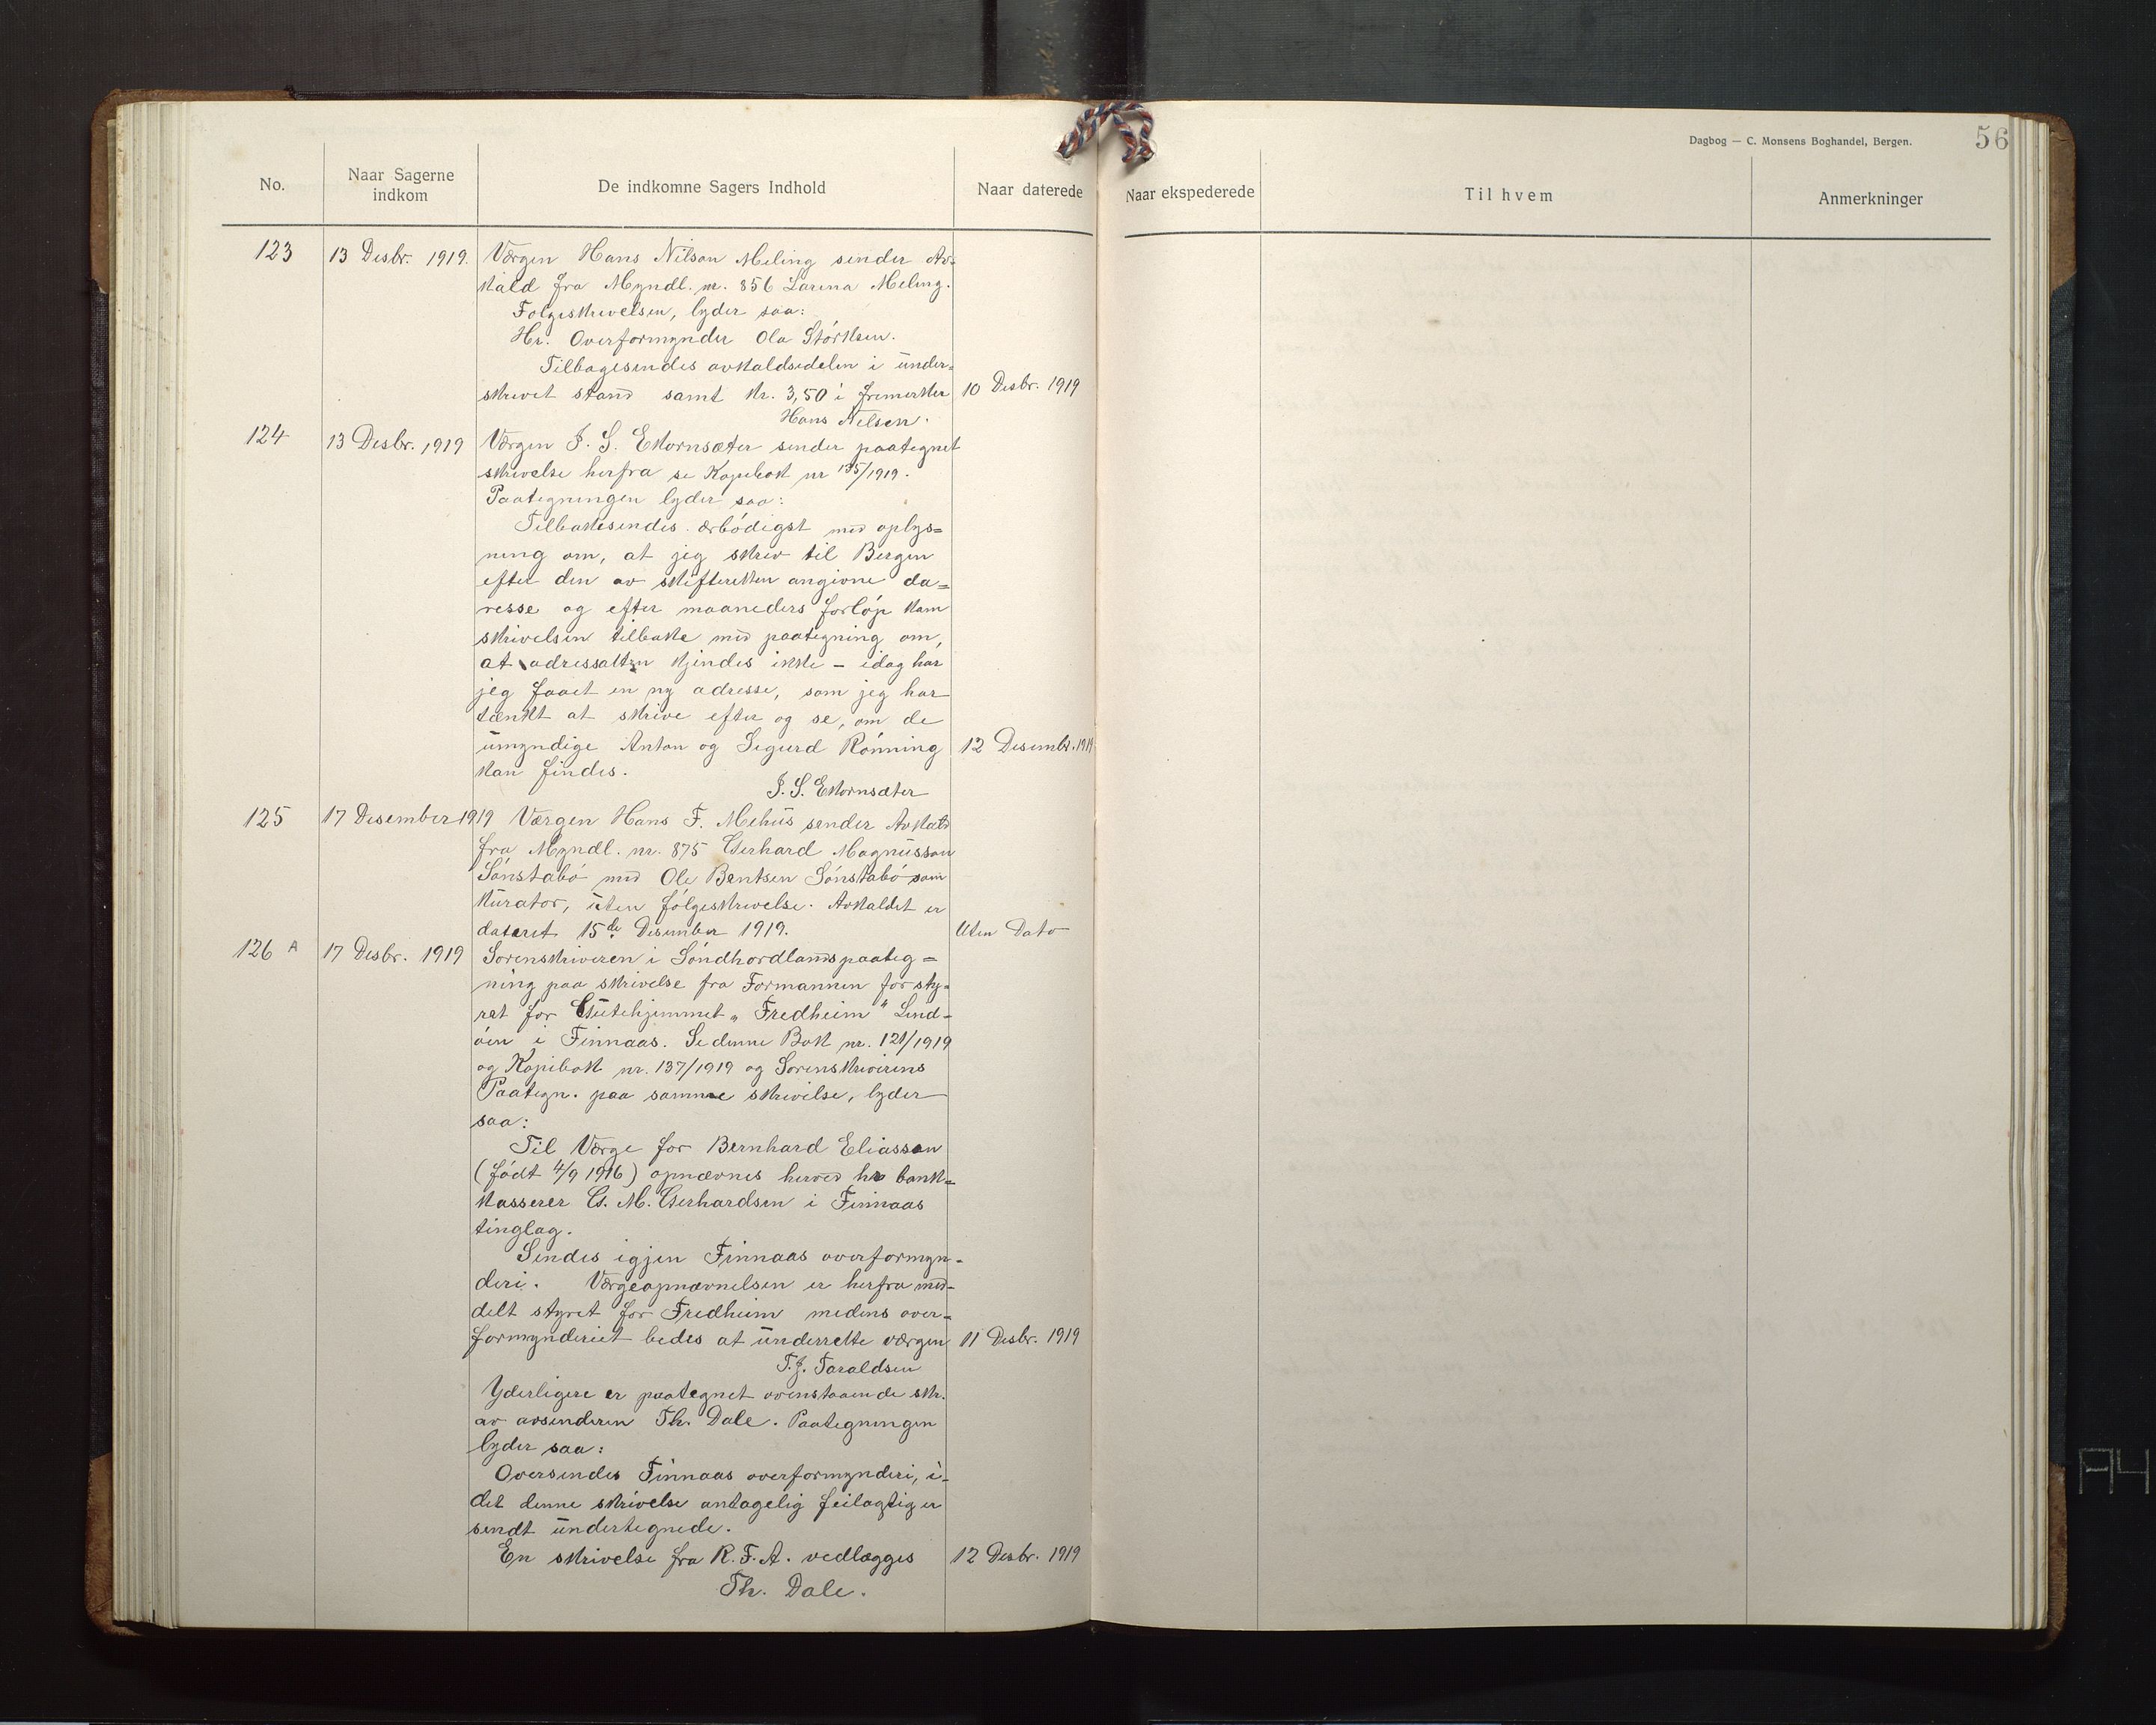 Dagbog — C. Monsens Boghandel, Bergen.
56
No.
Naar Sagerne indkom
De indkomne Sagers Indhold
Naar daterede
Naar ekspederede
Til hvem
Anmerkninger
123 13 Desbr. 1919. Værgen Hans Nilson Meling sender Av-
kald fra Myndl. nr. 856 Larina Meling.
Følgeskrivelsen, lyder saa:
Hr. Overformynder Ola Størksen.
Tilbagesendes avkaldsedelen i under-
skrevet stand samt kr. 3,50 i frimerker 10 Desbr. 1919
Hans Nilsen.
124 13 Desbr. 1919 Værgen J. S. Ekornsæter sender paategnet
skrivelse herfra se Kopibok nr 135/1919.
Paategningen lyder saa:
Tilbakesendes ærbødigst med oplys=
ning om, at jeg skrev til Bergen
efter den av skifteretten angivne da=
resse og efter maaneders forløp kam
skrivelsen tilbake med paategning om,
at adressatten kjendes ikke - idag har
jeg faaet en ny adresse, som jeg har
tænkt at skrive efter og se, om de
umyndige Anton og Sigurd Rønning 12 Desembr. 1919
kan findes.
J. S. Ekornsæter
125 17 Desember 1919 Værgen Hans F. Mehus sender Avkald
fra Myndl. nr. 875 Gerhard Magnusson
Sønstabø med Ole Bentsen Sønstabø som
kurator, uten følgeskrivelse. Avkaldet er
dateret 15de Desember 1919. Uten Dato
126 A 17 Desbr. 1919 Sorenskriveren i Søndhordlands paateg=
ning paa skrivelse fra Formannen for sty-
ret for Gutehjemmet „Fredheim" Lind-
øen i Finnaas. Se denne Bok nr. 121/1919
og Kopibok nr. 137/1919 og Sorenskriverens
Paategn. paa samme skrivelse, lyder
saa:
Til Værge for Bernhard Eliassen
(født 4/9 1916) opnævnes herved hr bank=
kasserer G. M. Gerhardsen i Finnaas
tinglag.
Sendes igjen Finnaas overformyn-
deri. Værgeopnævnelsen er herfra med-
delt styret for Fredheim medens over-
formynderiet bedes at underrette værgen 11 Desbr. 1919
T. J. Taraldsen
Yderligere er paategnet ovenstaaende skr.
av avsenderen Th. Dale. Paategningen
lyder saa:
Oversendes Finnaas overformynderi, i-
det denne skrivelse antagelig feilagtig er
sendt undertegnede.
En skrivelse fra R. F. A. vedlægges 12 Desbr. 1919
Th. Dale.
A4